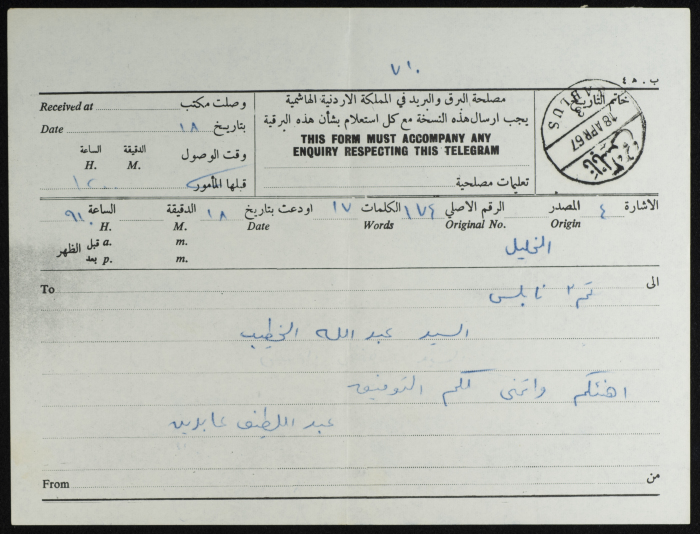 ٧١٠
ب. ٤٨
مصلحة البرق والبريد في المملكة الاردنية الهاشمية
يجب ارسال هذه النسخة مع كل استعلام بشأن هذه البرقية
THIS FORM MUST ACCOMPANY ANY
ENQUIRY RESPECTING THIS TELEGRAM
تعليمات مصلحية
خاتم التاريخ
NABLUS
18 APR 67
نابلس
Received at وصلت مكتب
Date ١٨ بتاريخ
الساعة الدقيقة وقت الوصول
H. M.
قبلها المأمور
الاشارة ٤ المصدر الرقم الاصلي ١٧٤ الكلمات ١٧ اودعت بتاريخ ١٨ الدقيقة الساعة ٩١٠
Origin Original No. Words Date M. H.
الخليل
قبل الظهر a. m.
بعد p. m.
To الى
نابلس
السيد عبد الله الخطيب
اهنئكم واتمنى لكم التوفيق
عبد اللطيف عابدين
From من